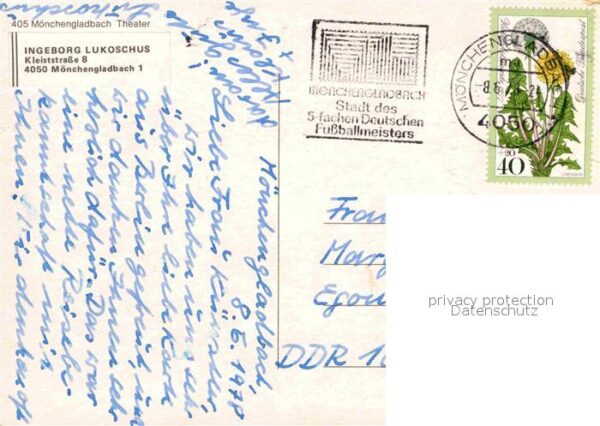 405 Mönchengladbach Theater
INGEBORG LUKOSCHUS
Kleiststraße 8
4050 Mönchengladbach 1
MÖNCHENGLADBACH
Stadt des
5-fachen Deutschen
Fußballmeisters
MÖNCHENGLADBACH
4050
Deutsche Bundespost
+20
40
LÖWENZAHN
Mönchengladbach
8.6.1978
Liebe Frau
Wir haben uns sehr
über Ihre liebe Karte
aus Berlin gefreut, und
wir danken Ihnen sehr
herzlich dafür. Das war
eine nette Reisebe-
kanntschaft mit
Ihnen! Wir denken oft
Lukoschus
DDR
privacy protection
Datenschutz